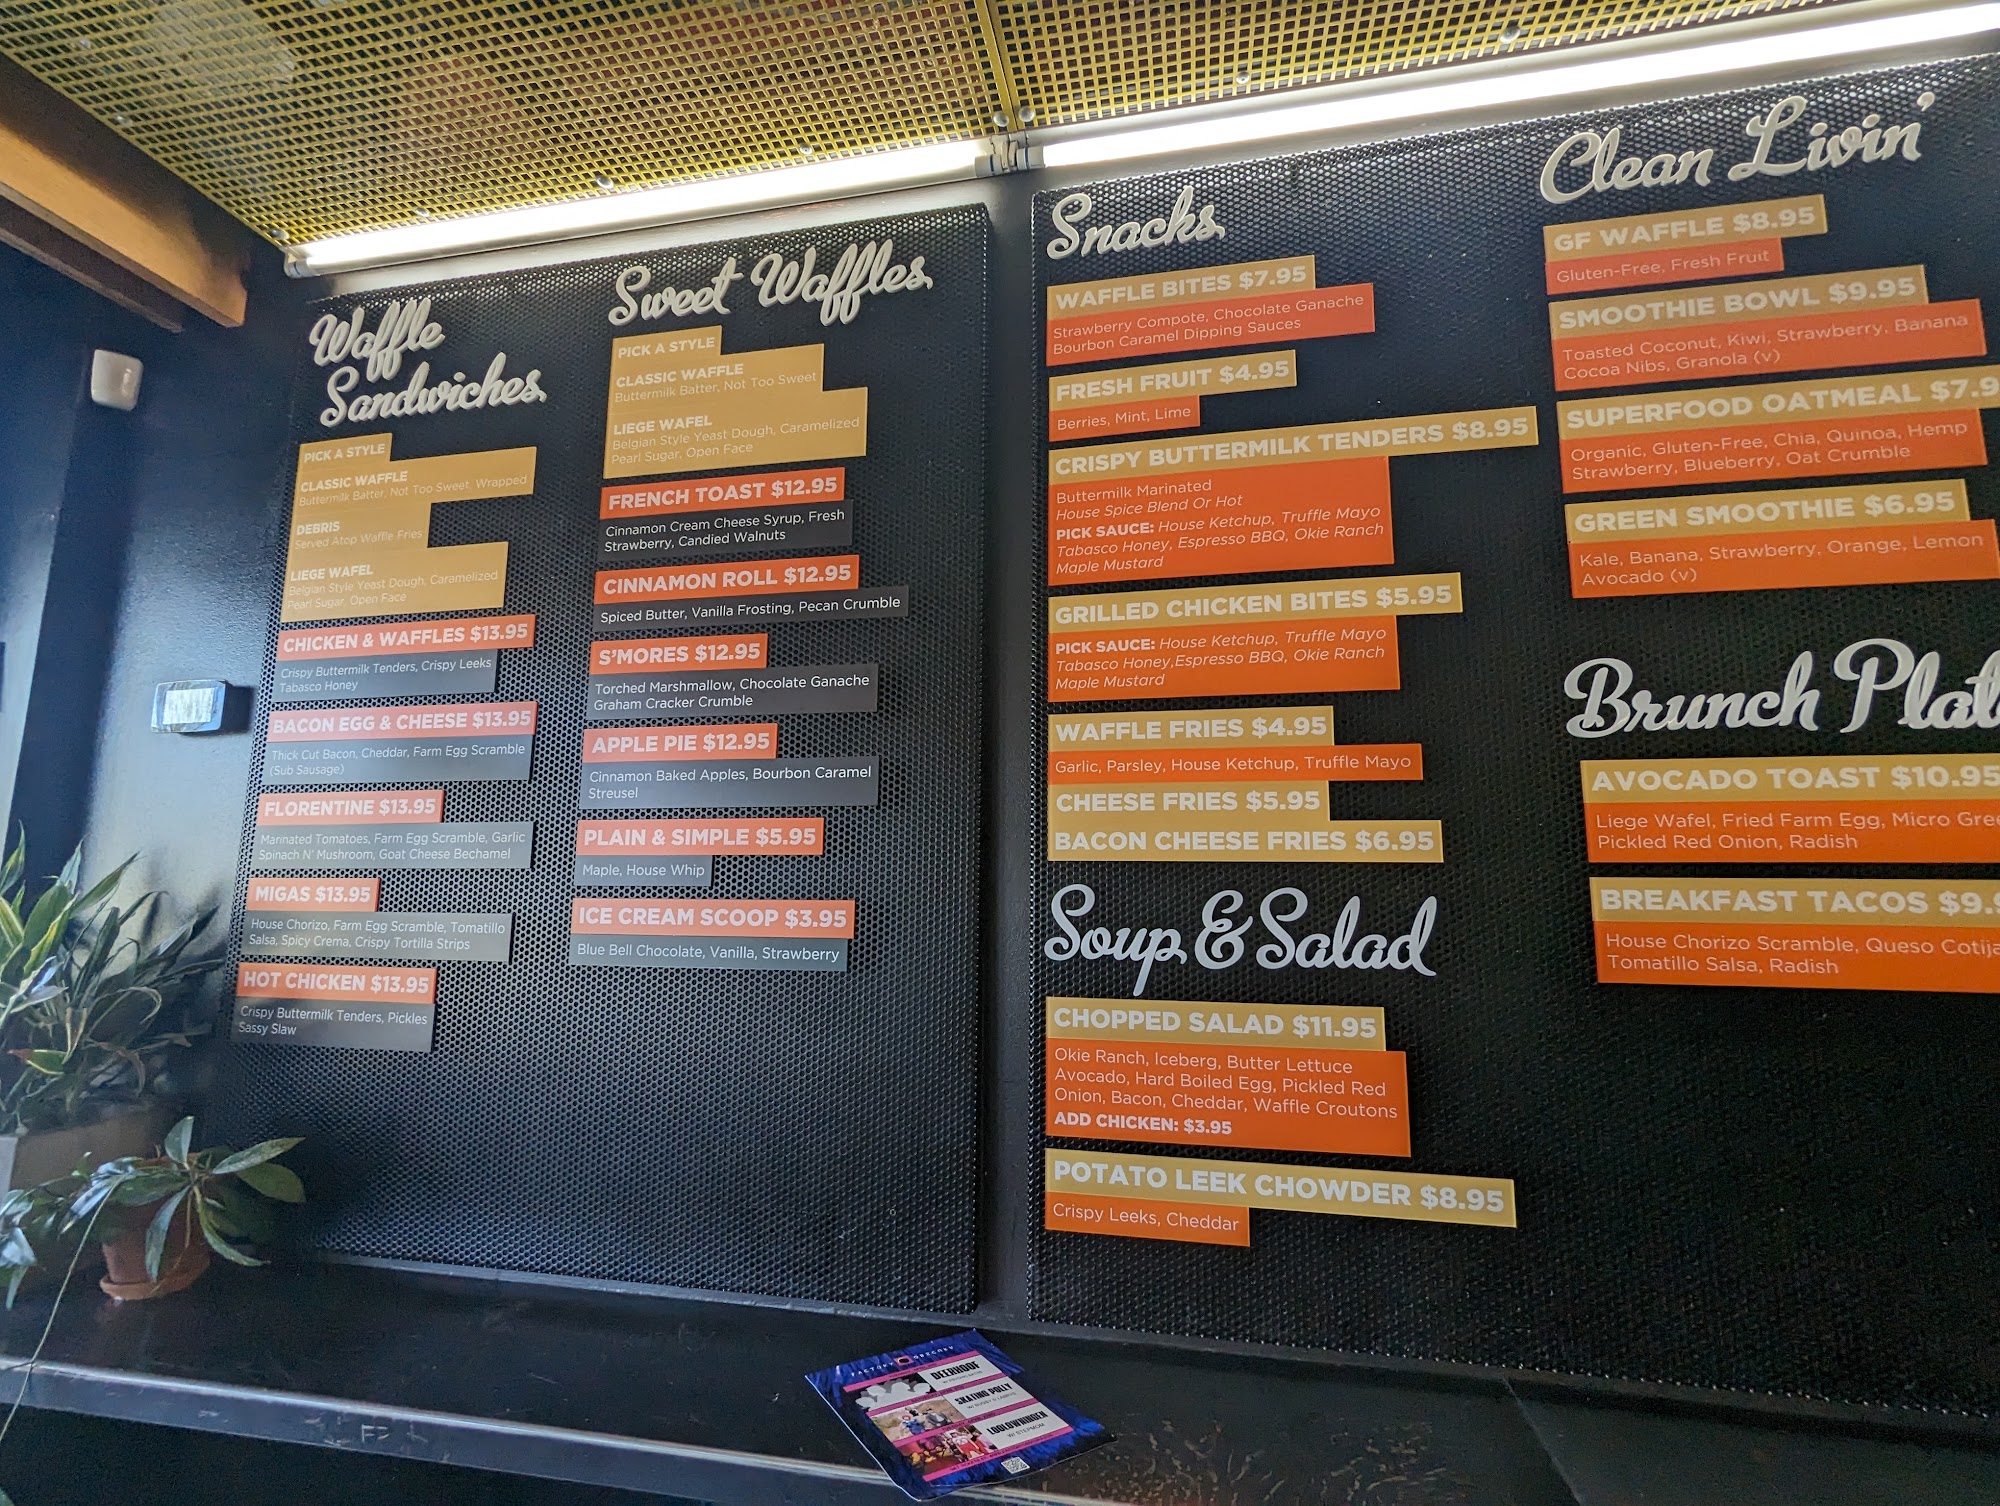 Waffle
Sandwiches
PICK A STYLE
CLASSIC WAFFLE
Buttermilk Batter, Not Too Sweet, Wrapped
DEBRIS
Served Atop Waffle Fries
LIEGE WAFEL
Belgian Style Yeast Dough, Caramelized
Pearl Sugar, Open Face
CHICKEN & WAFFLES $13.95
Crispy Buttermilk Tenders, Crispy Leeks
Tabasco Honey
BACON EGG & CHEESE $13.95
Thick Cut Bacon, Cheddar, Farm Egg Scramble
(Sub Sausage)
FLORENTINE $13.95
Marinated Tomatoes, Farm Egg Scramble, Garlic
Spinach N' Mushroom, Goat Cheese Bechamel
MIGAS $13.95
House Chorizo, Farm Egg Scramble, Tomatillo
Salsa, Spicy Crema, Crispy Tortilla Strips
HOT CHICKEN $13.95
Crispy Buttermilk Tenders, Pickles
Sassy Slaw
Sweet Waffles
PICK A STYLE
CLASSIC WAFFLE
Buttermilk Batter, Not Too Sweet
LIEGE WAFEL
Belgian Style Yeast Dough, Caramelized
Pearl Sugar, Open Face
FRENCH TOAST $12.95
Cinnamon Cream Cheese Syrup, Fresh
Strawberry, Candied Walnuts
CINNAMON ROLL $12.95
Spiced Butter, Vanilla Frosting, Pecan Crumble
S'MORES $12.95
Torched Marshmallow, Chocolate Ganache
Graham Cracker Crumble
APPLE PIE $12.95
Cinnamon Baked Apples, Bourbon Caramel
Streusel
PLAIN & SIMPLE $5.95
Maple, House Whip
ICE CREAM SCOOP $3.95
Blue Bell Chocolate, Vanilla, Strawberry
Snacks
WAFFLE BITES $7.95
Strawberry Compote, Chocolate Ganache
Bourbon Caramel Dipping Sauces
FRESH FRUIT $4.95
Berries, Mint, Lime
CRISPY BUTTERMILK TENDERS $8.95
Buttermilk Marinated
House Spice Blend Or Hot
PICK SAUCE: House Ketchup, Truffle Mayo
Tabasco Honey, Espresso BBQ, Okie Ranch
Maple Mustard
GRILLED CHICKEN BITES $5.95
PICK SAUCE: House Ketchup, Truffle Mayo
Tabasco Honey,Espresso BBQ, Okie Ranch
Maple Mustard
WAFFLE FRIES $4.95
Garlic, Parsley, House Ketchup, Truffle Mayo
CHEESE FRIES $5.95
BACON CHEESE FRIES $6.95
Soup & Salad
CHOPPED SALAD $11.95
Okie Ranch, Iceberg, Butter Lettuce
Avocado, Hard Boiled Egg, Pickled Red
Onion, Bacon, Cheddar, Waffle Croutons
ADD CHICKEN: $3.95
POTATO LEEK CHOWDER $8.95
Crispy Leeks, Cheddar
Clean Livin'
GF WAFFLE $8.95
Gluten-Free, Fresh Fruit
SMOOTHIE BOWL $9.95
Toasted Coconut, Kiwi, Strawberry, Banana
Cocoa Nibs, Granola (v)
SUPERFOOD OATMEAL $7.9
Organic, Gluten-Free, Chia, Quinoa, Hemp
Strawberry, Blueberry, Oat Crumble
GREEN SMOOTHIE $6.95
Kale, Banana, Strawberry, Orange, Lemon
Avocado (v)
Brunch Plat
AVOCADO TOAST $10.95
Liege Wafel, Fried Farm Egg, Micro Gree
Pickled Red Onion, Radish
BREAKFAST TACOS $9.9
House Chorizo Scramble, Queso Cotija
Tomatillo Salsa, Radish
FACTORY OBSCURA
DEERHOOF
SKATING POLLY
LOOLOWNINGEN
W/ STEPMOM